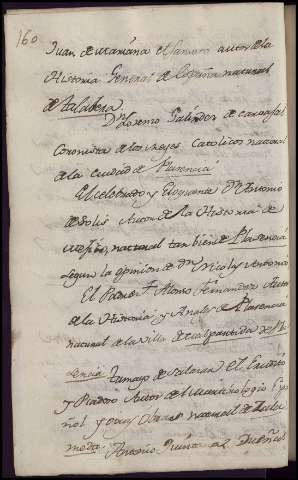 160
Juan de Mariana el famoso autor de la
Historia General de España natural
de Talabera.
Dn. Lorenzo Galindez de Carabajal
Coronista de los reyes Catolicos natural
de la ciudad de Plasencia
El celebrado y Eloquente Dn. Antonio
de Solis Autor de la Historia de
Mexico, natural tambien de Plasencia
segun la opinion de Dn. Nicolas Antonio
El Padre Fr. Alonso Fernandez Autor
de la Historia y Anales de Plasencia
natural de la villa de Malpartida de Pla
sencia Tamayo de Salazar el Erudito
y Piadoso Autor del Martirologio Espa
ñol y otras Obras natural de Zala
mea. Antonio